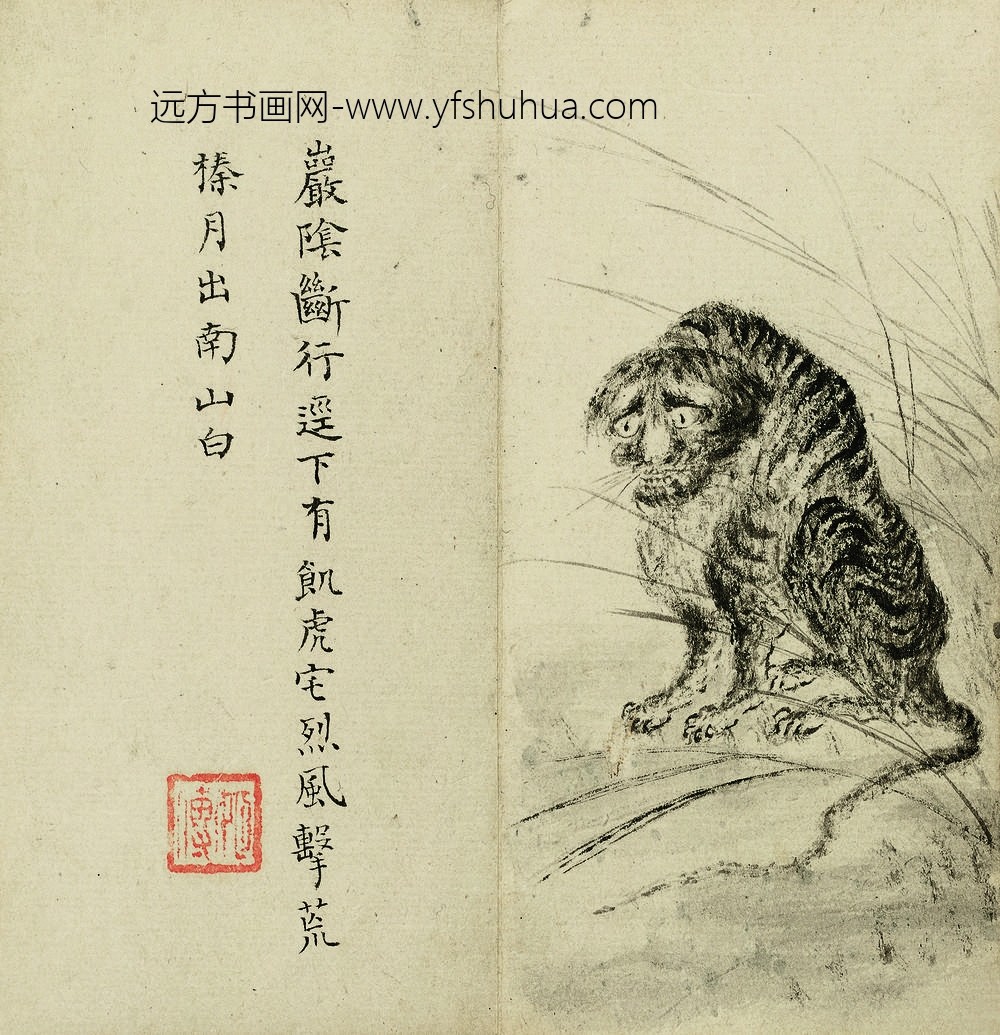 远方书画网-www.yfshuhua.com
巖陰斷行逕下有飢虎宅烈風擊荒
榛月出南山白